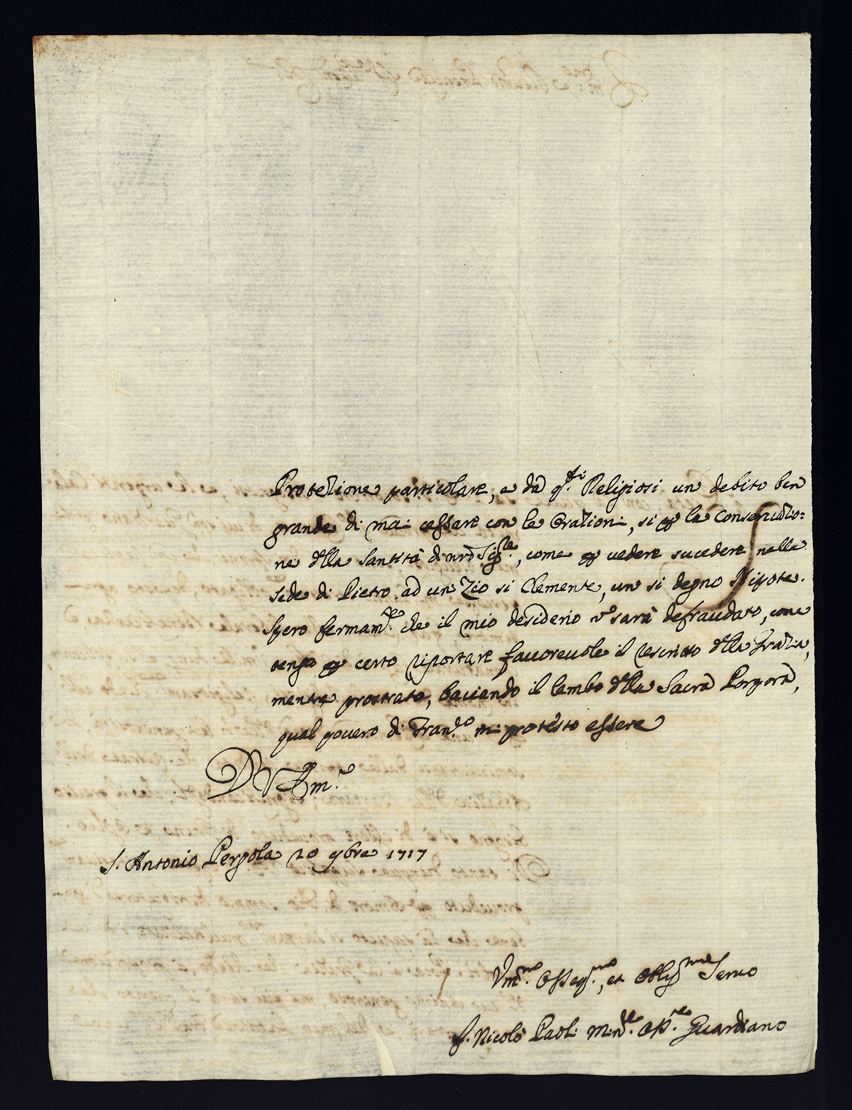 Protezione particolare, e dà q.sti Religiosi un debito ben
grande di mai cessare con le Orationi, si p la conservatio=
ne d'lla Santità di nrõ Sig.re, come p vedere succedere nella
sede di Pietro ad un Zio si Clemente, un si degno Nipote.
Spero fermam.te che il mio desiderio nõ sarà defraudato, come
tengo p certo riportare favorevole il rescritto d'lla grazia,
mentre prostrato, baciando il lembo d'lla Sacra Porpora,
qual povero di Fran.co mi protèsto essere
D V Em.a
S. Antonio Pergola 20 9bre 1717
Vm.mo Osseq.mo, et Obblig.mo Servo
f. Nicolò Paoli Min.le Guardiano